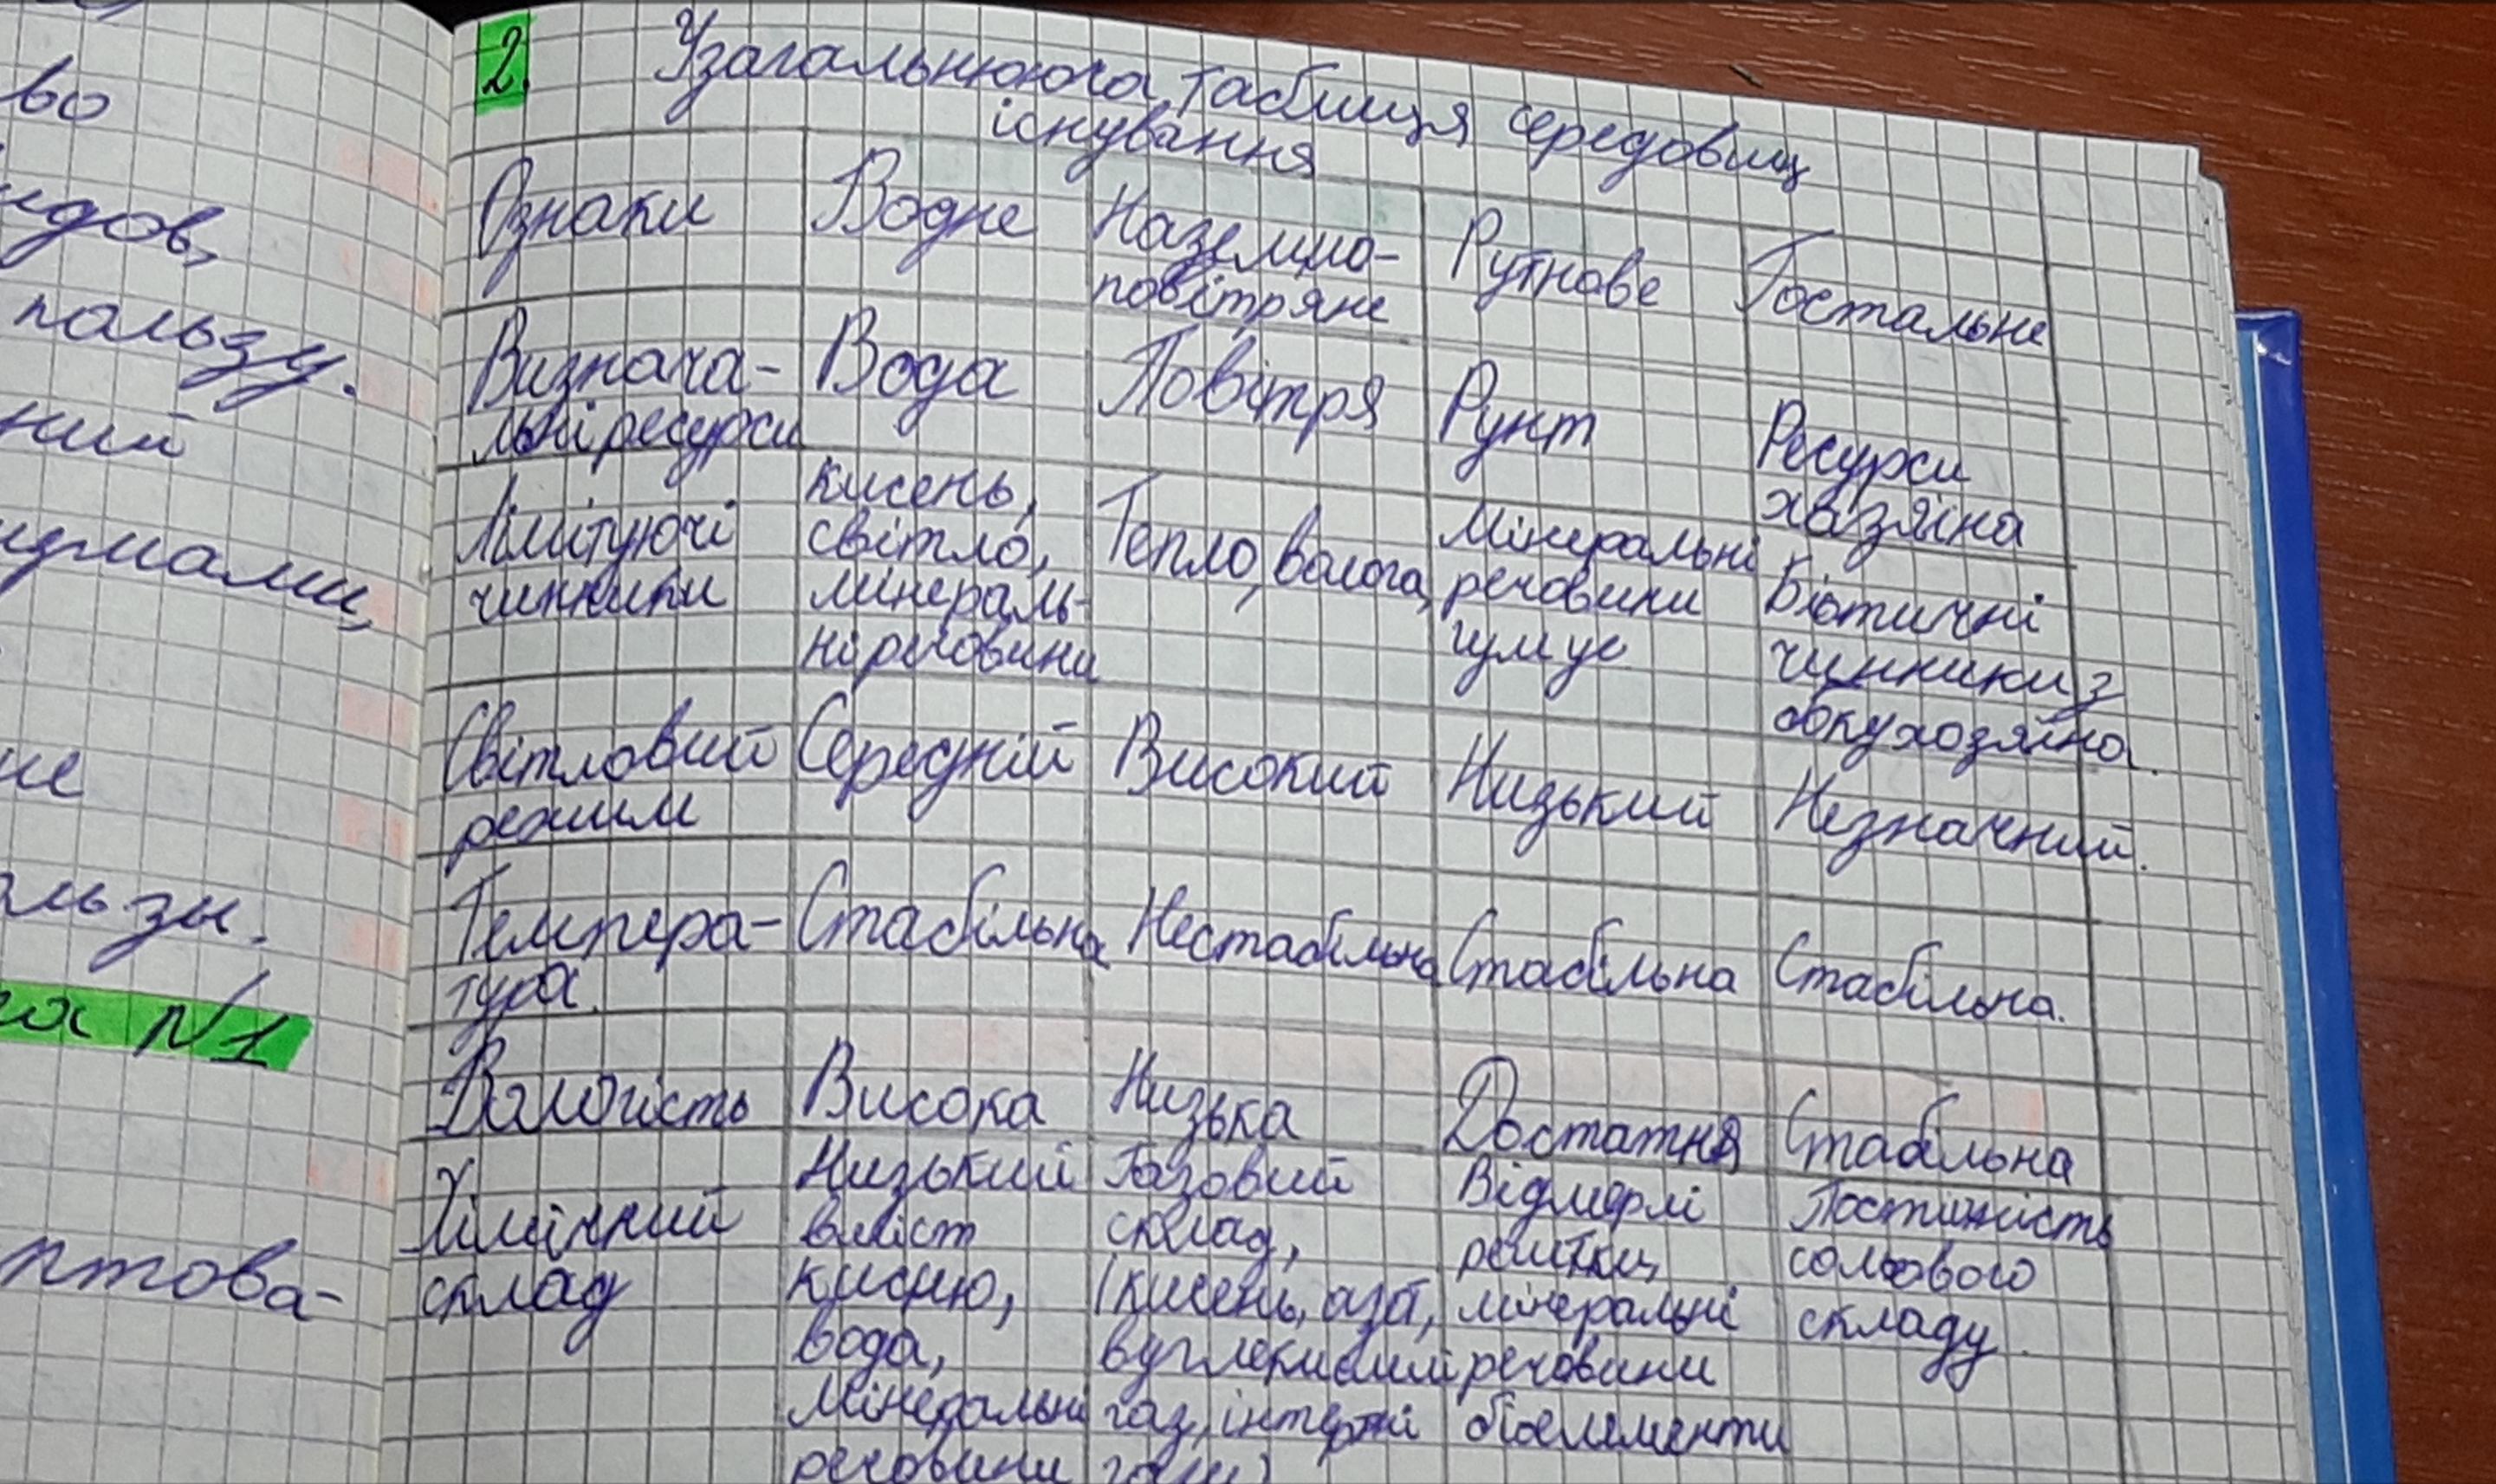 во
идов,
пользу.
ний
идиами,
не
льзы.
ия №1
птова-
2. Узагальнююча таблиця середовищ
існування
Ознаки Водне Наземно-повітряне Рутнове Гостальне
Визнача-льні ресурси Вода Повітря Рунт Ресурси хазяїна
Лімітуючі чинники кисень, світло, мінераль-ні речовини Тепло, волога, Мінеральні речовини гумус Біотичні чинники з боку хозяїна.
Світловий режим Середній Високий Низький Незначний.
Темпера-тура. Стабільна Нестабільна Стабільна Стабільна.
Вологість Висока Низька Достатня Стабільна
Хімічний склад Низький вміст кисню, вода, Мінеральні речовини Газовий склад, (кисень, азот, вуглекислий газ, інтертні гази) Відмерлі рештки, мінеральні речовини біоелементи Постійність сольового складу.